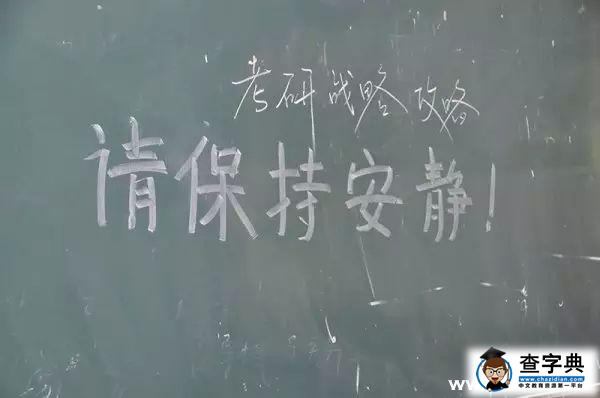 考研战略攻略
请保持安静！
查字典
www
http://www.chazidian.com
中文教育资源第一平台